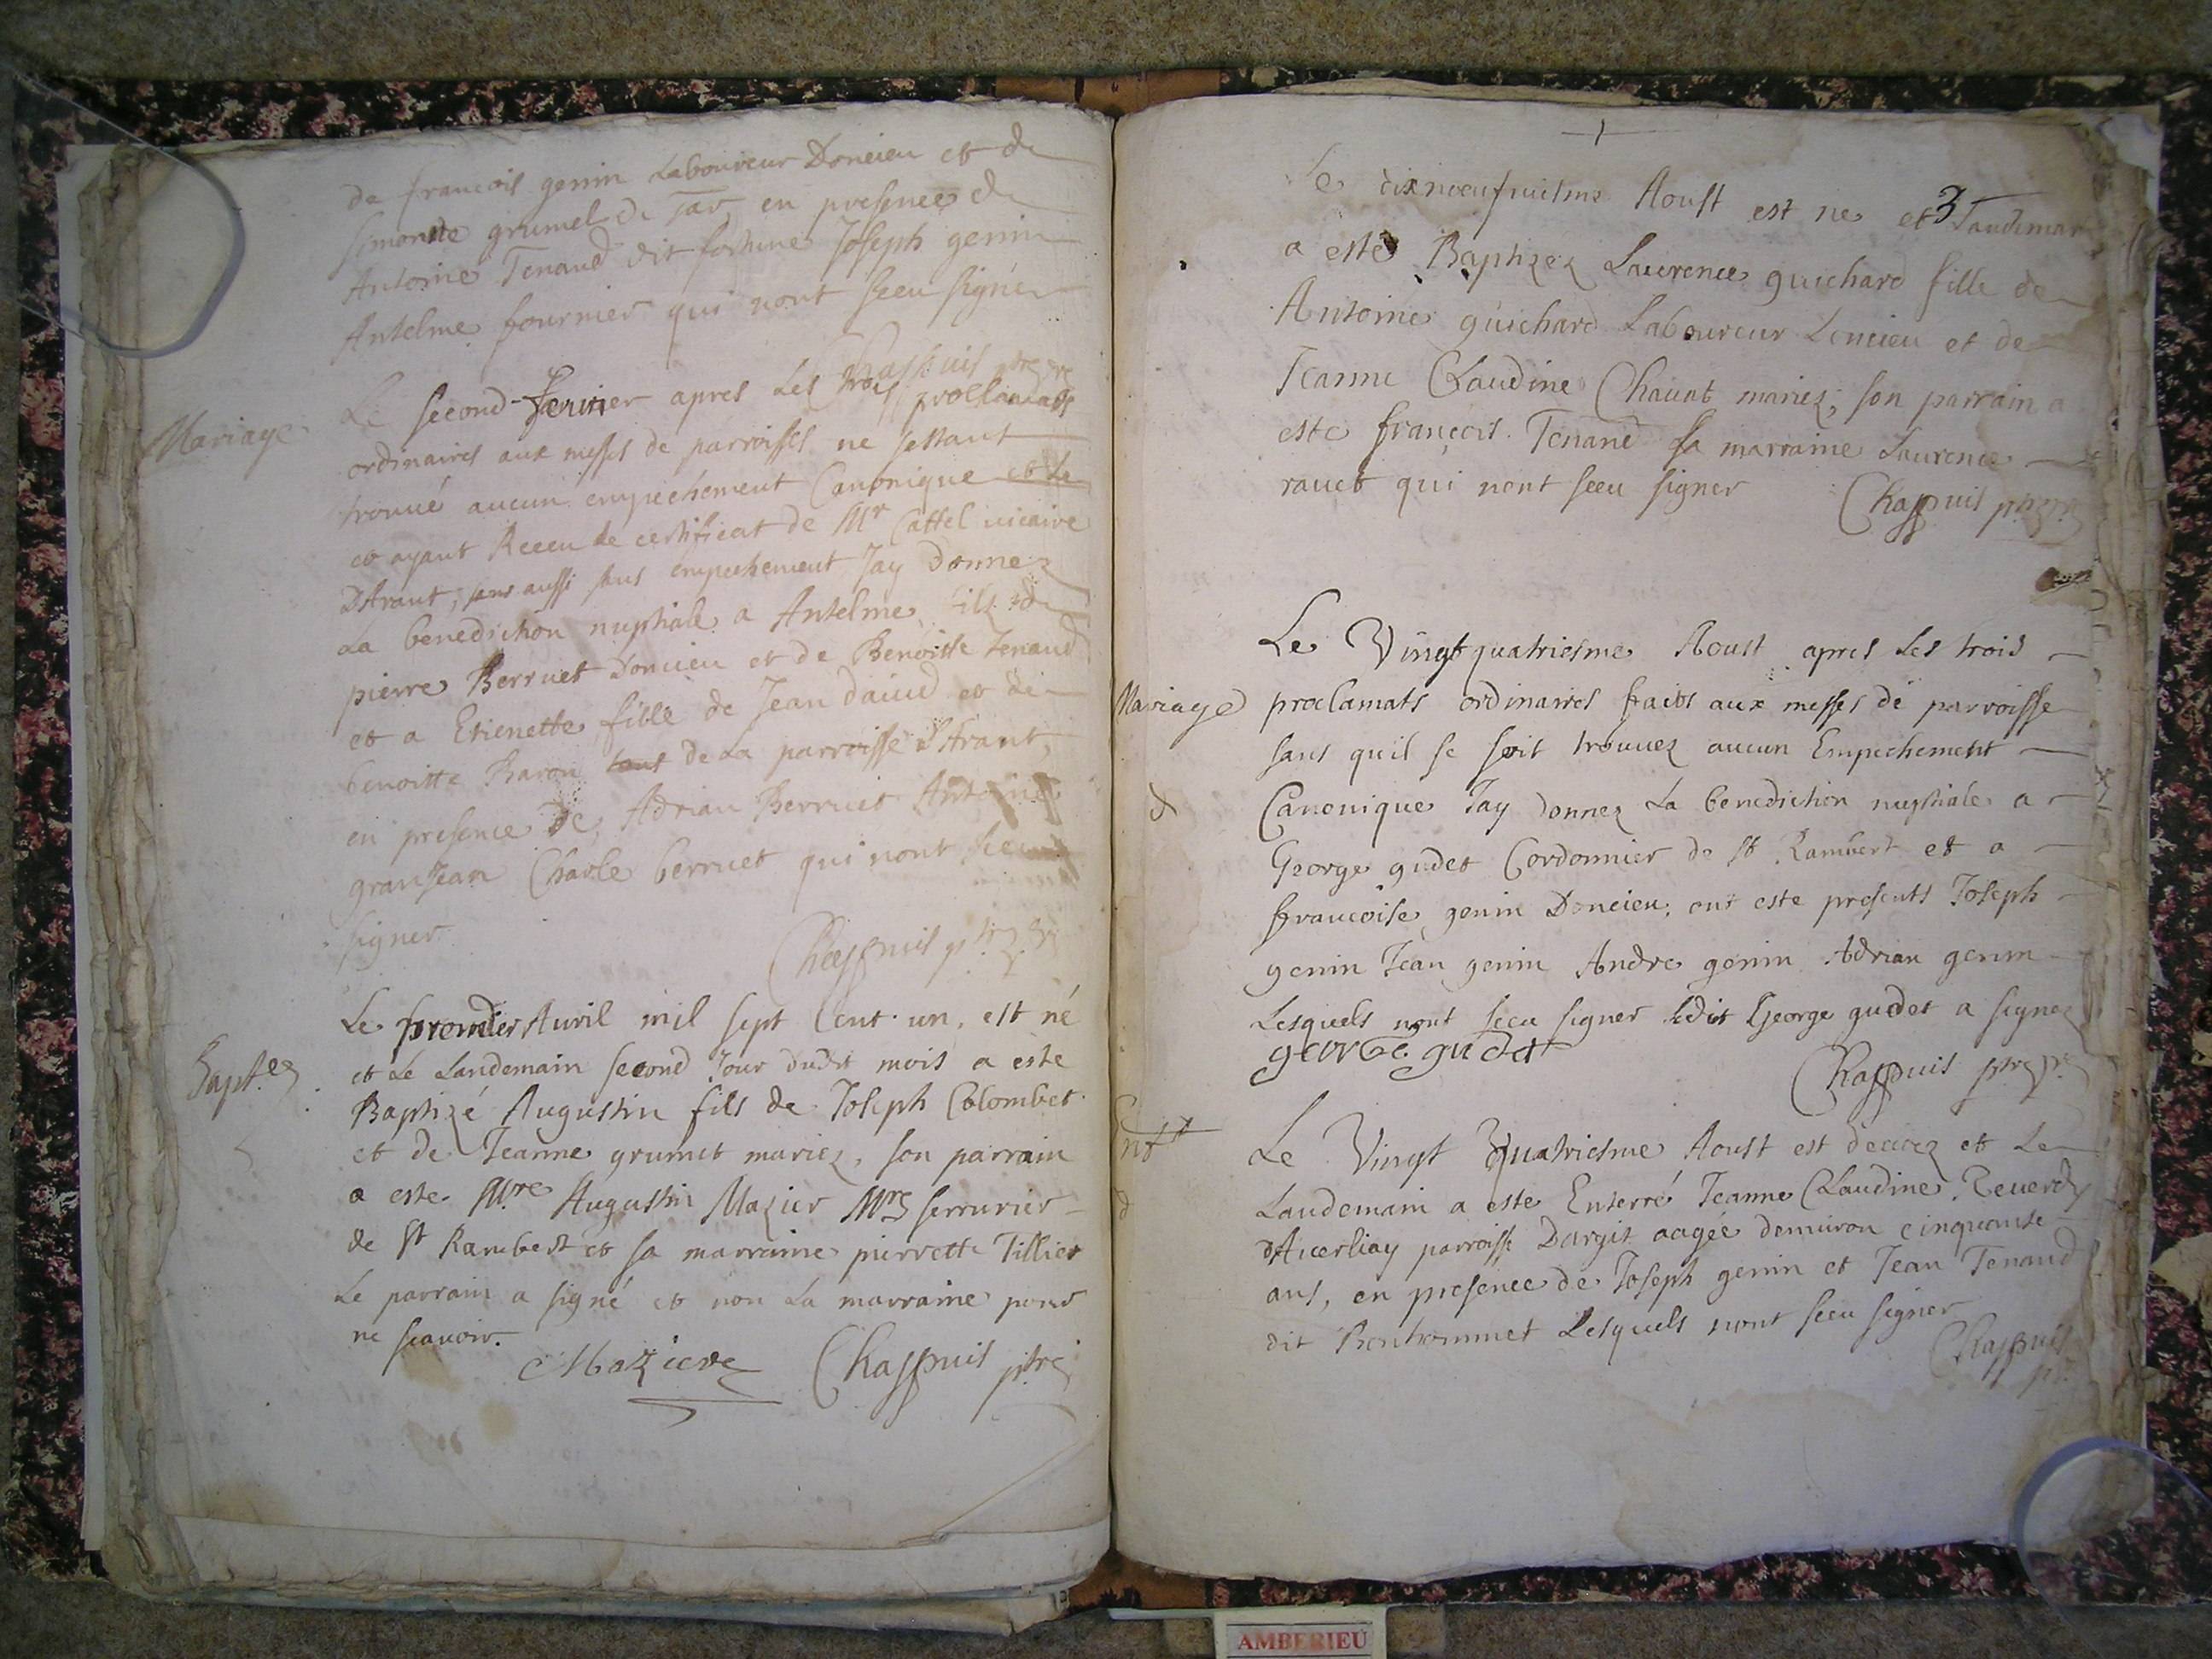 de francois genin Laboureur Doncieu et de
simonde grumel de Tar en presence de
Antoine Tenand dit fortune Joseph genin
Antelme fournier qui nont sceu signér
Chappuis ptre
Mariage
Le second feurier apres Les trois proclamats
ordinaires aux messes de parroisses ne sestant
trouué aucun empechement Canonique et Le
et ayant Receu le certificat de Mr Cattel uicaire
DArant, sans aussi sans empechement Jay donnez
La benediction nuptiale a Antelme fils de
pierre Berruet Doncieu et de Benoitte Tenand
et a Etienette fille de Jean dauid et de
benoitte Baron tous de La parroisse dArant,
en presence de Adrian Berruet Antoine
granjean Charle berruet qui nont sceu
signer
Chappuis ptre
Bapt.es
Le premier Auril mil sept Cent un, est né
et Le Landemain second Jour dudit mois a este
Baptizé Augustin fils de Joseph Colombet
et de Jeanne grumet mariez, son parrain
a este Mre Augustin Mazier Mre serrurier
de St Rambert et sa marraine pierrette Tillier
Le parrain a signé et non La marraine pour
ne scauoir.
Maziere Chappuis ptre
3
Le dixneufuiesme Aoust est ne et Landemain
a esté Baptizez Laurence guichard fille de
Antoine guichard Laboureur Doncieu et de
Jeanne Claudine Chauat mariez, son parrain a
este françois Tenand sa marraine Laurence
rauet qui nont sceu signer
Chappuis ptre
Mariage
Le Vingt quatriesme Aoust apres Les trois
proclamats ordinaires faits aux messes de parroisse
sans quil se soit trouuez aucun Empechement
Canonique Jay donnez La benediction nuptiale a
George gudet Cordonnier de St Rambert et a
francoise genin Doncieu, ont este presents Joseph
genin Jean genin Andre genin Adrian genin
Lesquels nont sceu signer Ledit George gudet a signez
george gudet
Chappuis ptre
Ent
Le Vingt Quatriesme Aoust est decedez et Le
Landemain a este Enterré Jeanne Claudine Reuerdy
parroisse Dargit aagée denuiron cinquante
ans, en presence de Joseph genin et Jean Tenand
dit Bonhommet Lesquels nont sceu signer
Chappuis
ptre
AMBERIEU